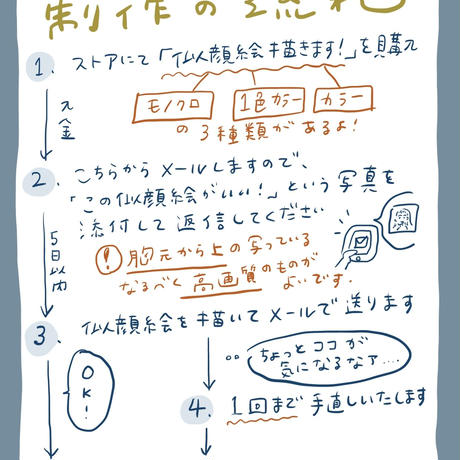 制作の流れ
1. ストアにて「似顔絵描きます!」を購入
モノクロ 1色カラー カラー
の3種類があるよ!
入金
2. こちらからメールしますので、
「この似顔絵がいい!」という写真を
添付して返信してください
! 胸元から上の写っている
なるべく高画質のものが
よいです。
5日以内
3. 似顔絵を描いてメールで送ります
OK!
ちょっとココが
気になるなァ....
4. 1回まで手直しいたします